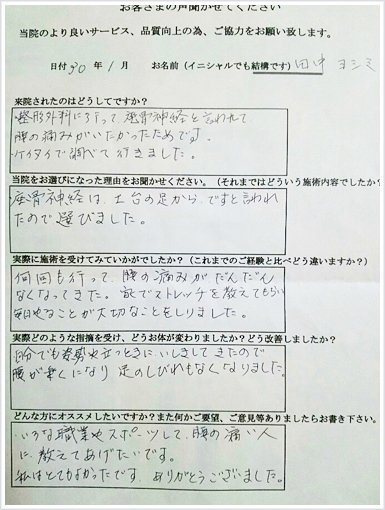 お客さまの声聞かせてください
当院のより良いサービス、品質向上の為、ご協力をお願い致します。
日付 30年 1月 お名前（イニシャルでも結構です）田中 ヨシミ
来院されたのはどうしてですか？
整形外科に行って座骨神経と言われて
腰の痛みがいたかったためです。
ケイタイで調べて行きました。
当院をお選びになった理由をお聞かせください。（それまではどういう施術内容でしたか
座骨神経は、土台の足から、ですと言われ
たので選びました。
実際に施術を受けてみていかがでしたか？（これまでのご経験と比べどう違いますか？）
何回も行って、腰の痛みがだんだん
なくなってきた。家でストレッチを教えてもらい
毎日やることが大切なことをしりました。
実際どのような指摘を受け、どうお体が変わりましたか？どう改善しましたか？
自分でも姿勢や立つときに、いしきしてきたので
腰が楽くになり 足のしびれもなくなりました。
どんな方にオススメしたいですか？また何かご要望、ご意見等ありましたらお書き下さい。
いろな職業やスポーツして、腰の痛い人
に、教えてあげたいです。
私はとてもよかったです、ありがとうございました。